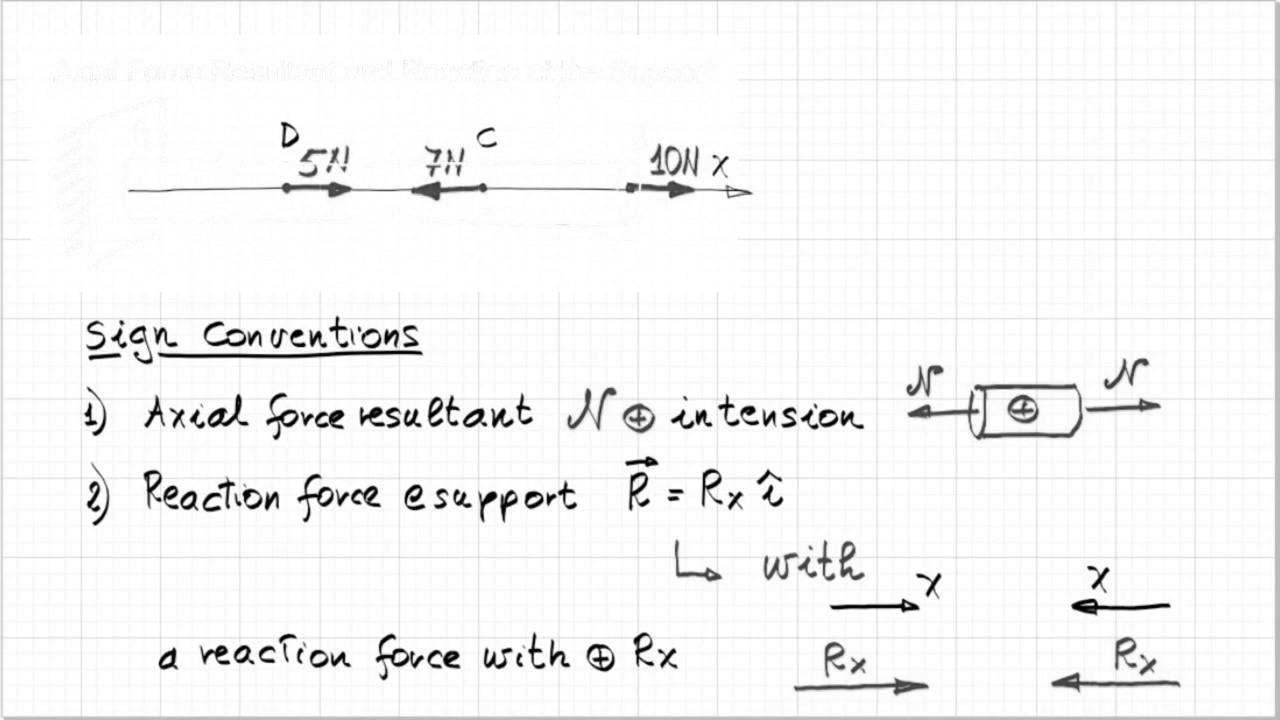 Axial Force Resultant and Reaction at the Support
D 5N 7N C 10N x
Sign Conventions
1) Axial force resultant N ⊕ in tension N ⊕ N
2) Reaction force @ support R = Rx î
with x x
a reaction force with ⊕ Rx Rx Rx